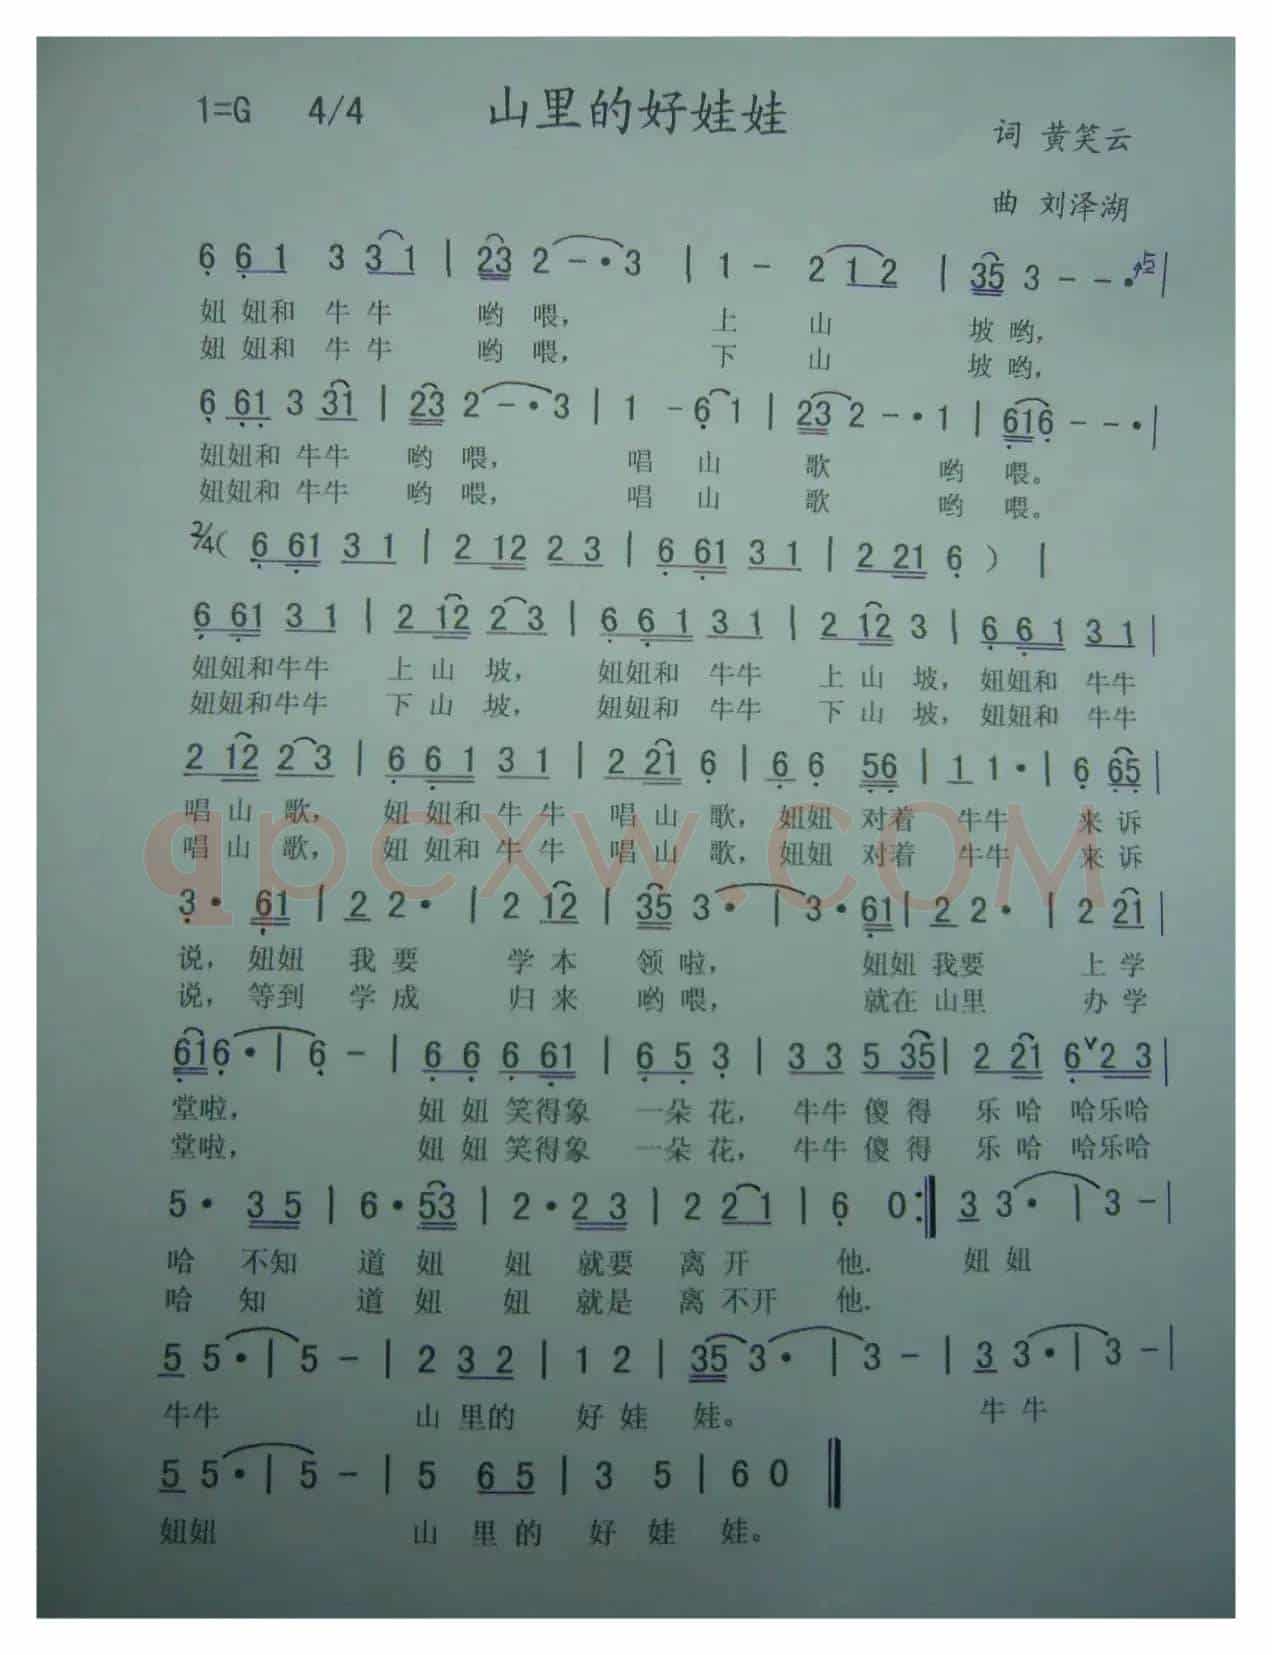 1=G 4/4 山里的好娃娃
词 黄笑云
曲 刘泽湖
6 6 1 3 3 1 | 23 2 - · 3 | 1 - 2 1 2 | 35 3 - - · |
妞 妞和 牛 牛 哟 喂， 上 山 坡 哟，
妞 妞和 牛 牛 哟 喂， 下 山 坡 哟，
6 61 3 31 | 23 2 - · 3 | 1 - 6 1 | 23 2 - · 1 | 616 - - · |
妞妞和 牛牛 哟 喂， 唱 山 歌 哟 喂。
妞妞和 牛牛 哟 喂， 唱 山 歌 哟 喂。
2/4( 6 61 3 1 | 2 12 2 3 | 6 61 3 1 | 2 21 6 ) |
6 61 3 1 | 2 12 2 3 | 6 6 1 3 1 | 2 12 3 | 6 6 1 3 1 |
妞妞和牛牛 上 山 坡， 妞妞和 牛牛 上 山 坡， 妞妞和 牛牛
妞妞和牛牛 下 山 坡， 妞妞和 牛牛 下 山 坡， 妞妞和 牛牛
2 12 2 3 | 6 6 1 3 1 | 2 21 6 | 6 6 56 | 1 1 · | 6 65 |
唱 山 歌， 妞 妞和 牛 牛 唱 山 歌， 妞妞 对着 牛牛 来 诉
唱 山 歌， 妞 妞和 牛 牛 唱 山 歌， 妞妞 对着 牛牛 来 诉
qpcxw.COM
3 · 61 | 2 2 · | 2 12 | 35 3 · | 3 · 61 | 2 2 · | 2 21 |
说， 妞妞 我 要 学 本 领 啦， 妞妞 我要 上 学
说， 等到 学 成 归 来 哟 喂， 就在 山里 办 学
616 · | 6 - | 6 6 6 61 | 6 5 3 | 3 3 5 35 | 2 21 6 ∨ 2 3 |
堂啦， 妞 妞 笑得象 一朵 花， 牛牛 傻 得 乐 哈 哈乐哈
堂啦， 妞 妞 笑得象 一朵 花， 牛牛 傻 得 乐 哈 哈乐哈
5 · 3 5 | 6 · 53 | 2 · 2 3 | 2 2 1 | 6 0 :‖ 3 3 · | 3 - |
哈 不知 道 妞 妞 就要 离 开 他. 妞 妞
哈 知 道 妞 妞 就是 离 不开 他.
5 5 · | 5 - | 2 3 2 | 1 2 | 35 3 · | 3 - | 3 3 · | 3 - |
牛牛 山 里的 好 娃 娃。 牛 牛
5 5 · | 5 - | 5 6 5 | 3 5 | 6 0 ‖
妞妞 山 里 的 好 娃 娃。